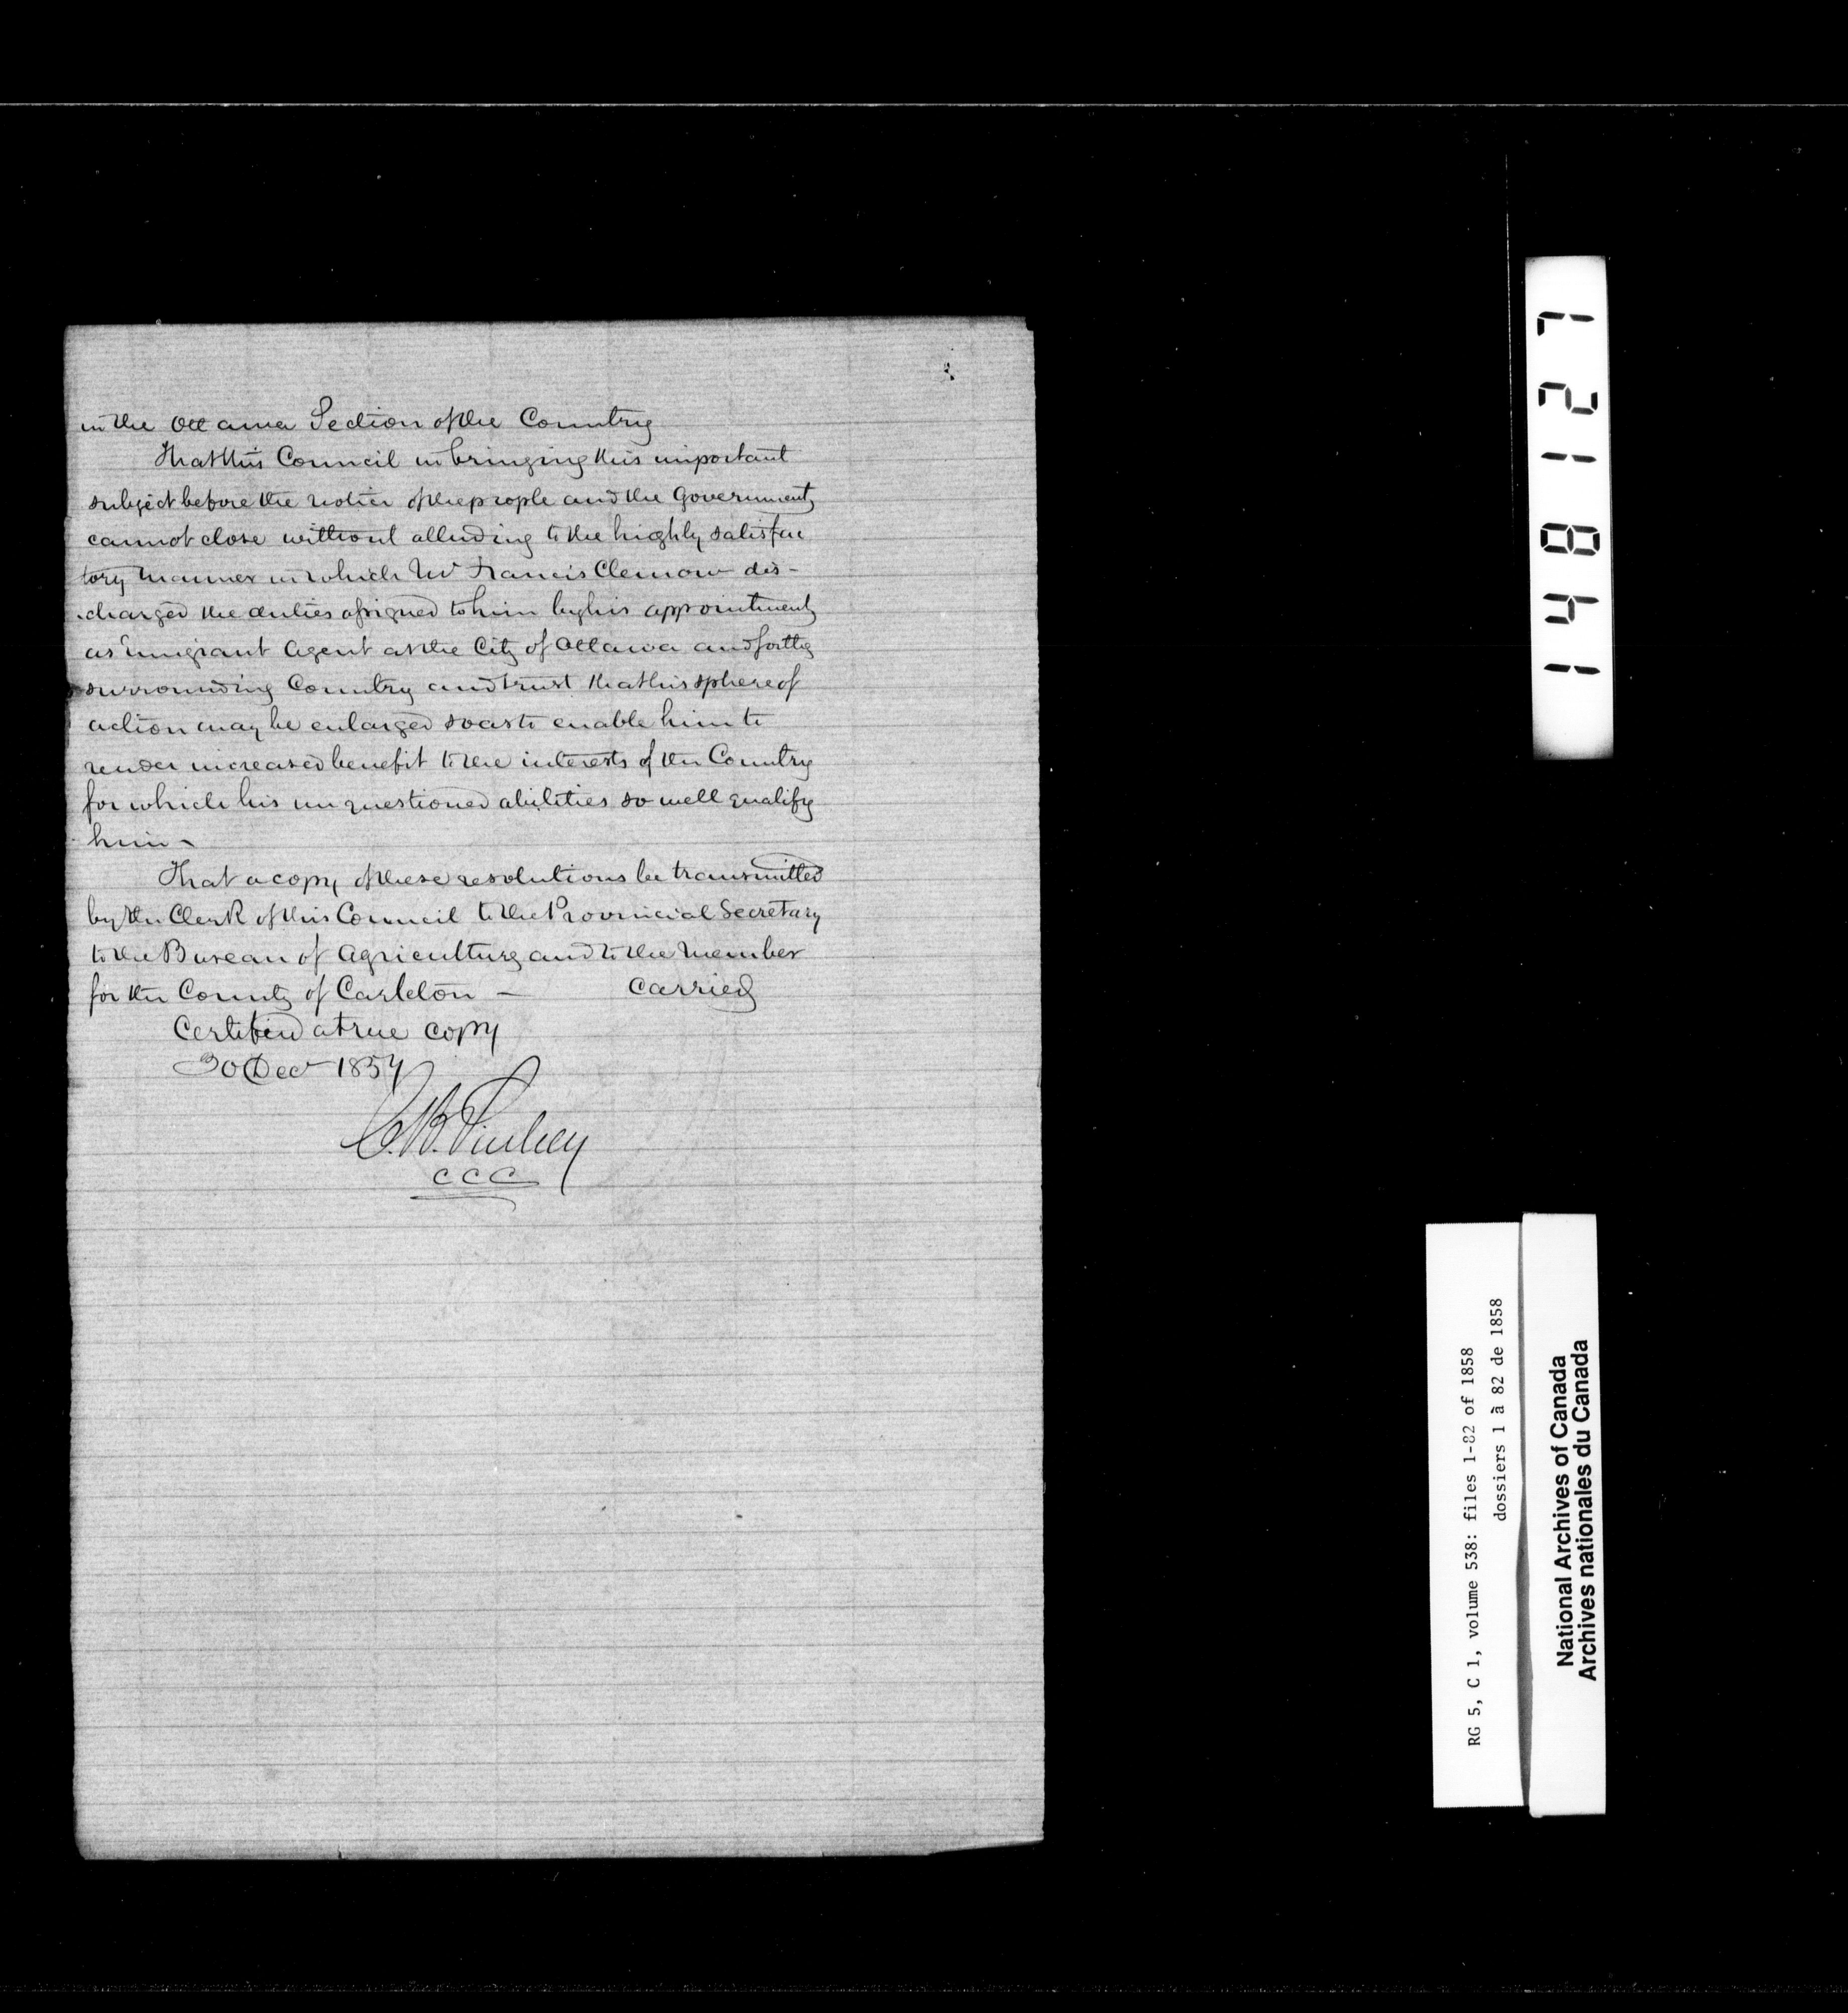 in the Ottawa Section of the Country
That this Council in bringing this important
subject before the notice of the people and the Government
cannot close without alluding to the highly satisfac
tory manner in which Mr Francis Clemow dis-
charged the duties assigned to him by his appointment
as Emigrant Agent at the City of Ottawa and for the
surrounding Country and trust that his sphere of
action may be enlarged so as to enable him to
render increased benefit to the interests of the Country
for which his unquestioned abilities so well qualify
him -
That a copy of these resolutions be transmitted
by the Clerk of this Council to the Provincial Secretary
to the Bureau of Agriculture and to the Member
for the County of Carleton - Carried
Certified a true copy
30 Dec 1857
C.B. Pinhey
CCC
148127
RG 5, C 1, volume 538: files 1-82 of 1858
dossiers 1 à 82 de 1858
National Archives of Canada
Archives nationales du Canada